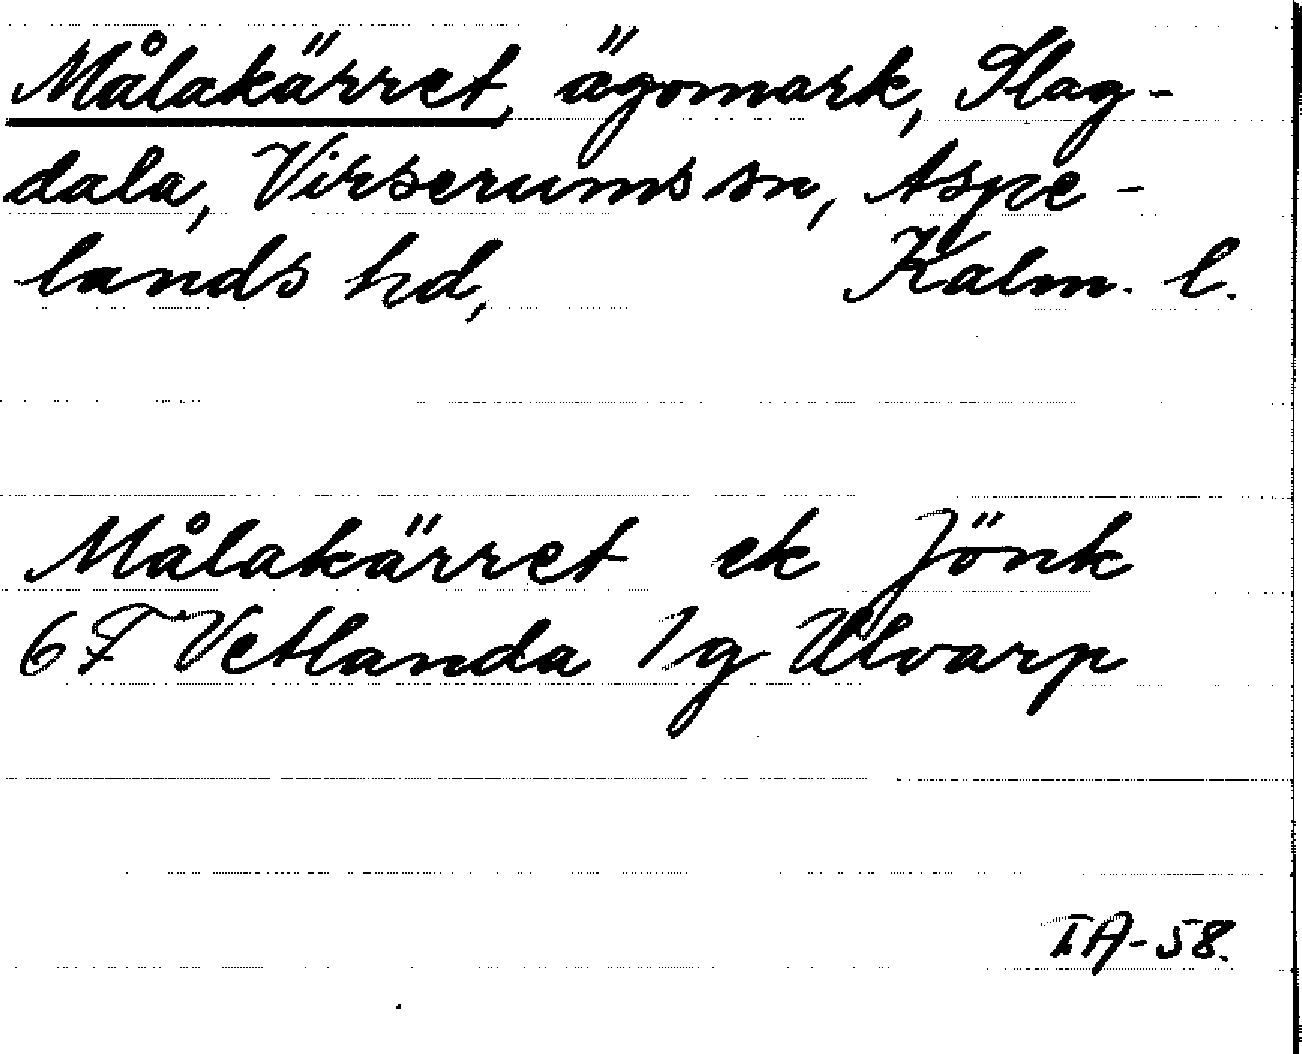 Målakärret, ägomark, Slag-
dala, Virserums sn, Aspe-
lands hd, Kalm. l.
Målakärret ek Jönk
6F Vetlanda 1g Ulvarp
IA-58.